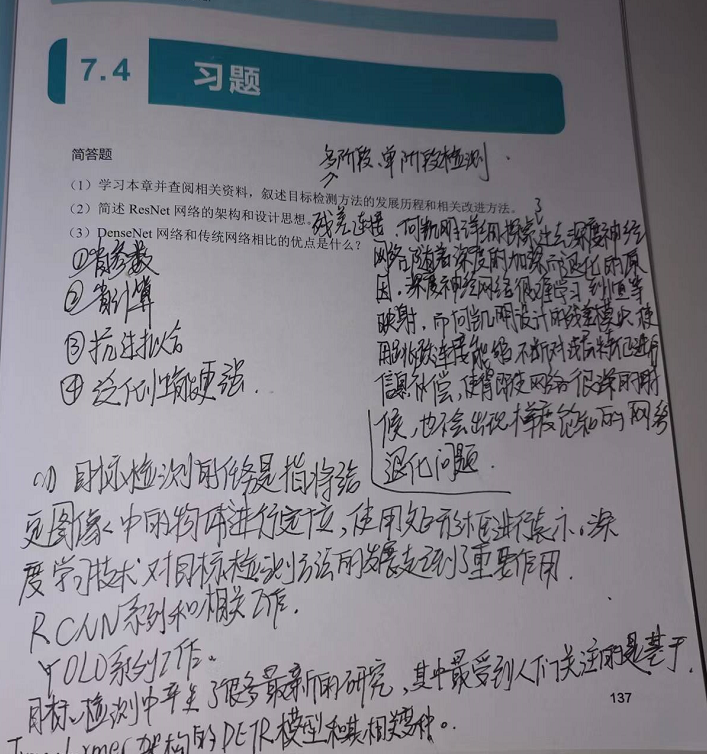 7.4 习题
简答题
多阶段、单阶段检测.
(1) 学习本章并查阅相关资料，叙述目标检测方法的发展历程和相关改进方法。
(2) 简述 ResNet 网络的架构和设计思想。
残差连接.何凯明详细探索过去深度神经
(3) DenseNet 网络和传统网络相比的优点是什么？
网络随着深度的加深而退化的原
因.深度神经网络很难学习到恒等
映射,而何凯明设计的残差模块,使
用跳跃连接能够不断对后特征进行
信息补偿,使得即使网络很深的时
候,也不会出现梯度的网络
退化问题.
①省参数
②省计算
③抗过拟合
④泛化性能更强.
(1) 目标检测的任务是指将给
定图像中的物体进行定位,使用矩形框进行表示。深
度学习技术对目标检测方法的发展起到了重要作用.
RCNN系列和相关工作.
YOLO系列工作。
目标检测中诞生了很多最新的研究,其中最受到人们关注的是基于
Transformer架构的DETR模型和其相关变种。
137